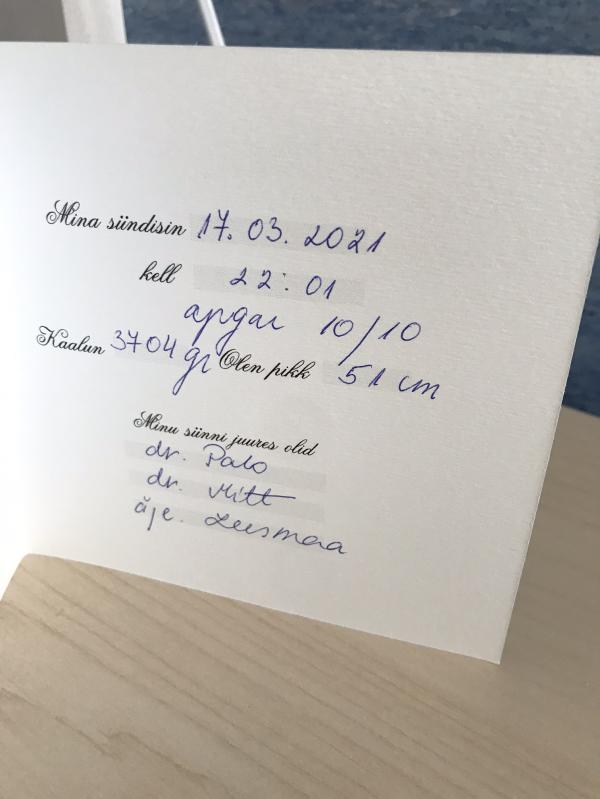 Mina sündisin 17.03.2021
kell 22:01
apgar 10/10
Kaalun 3704 gr Olen pikk 51 cm
Minu sünni juures olid
dr. Palo
dr. Mitt
äje. Leesmaa